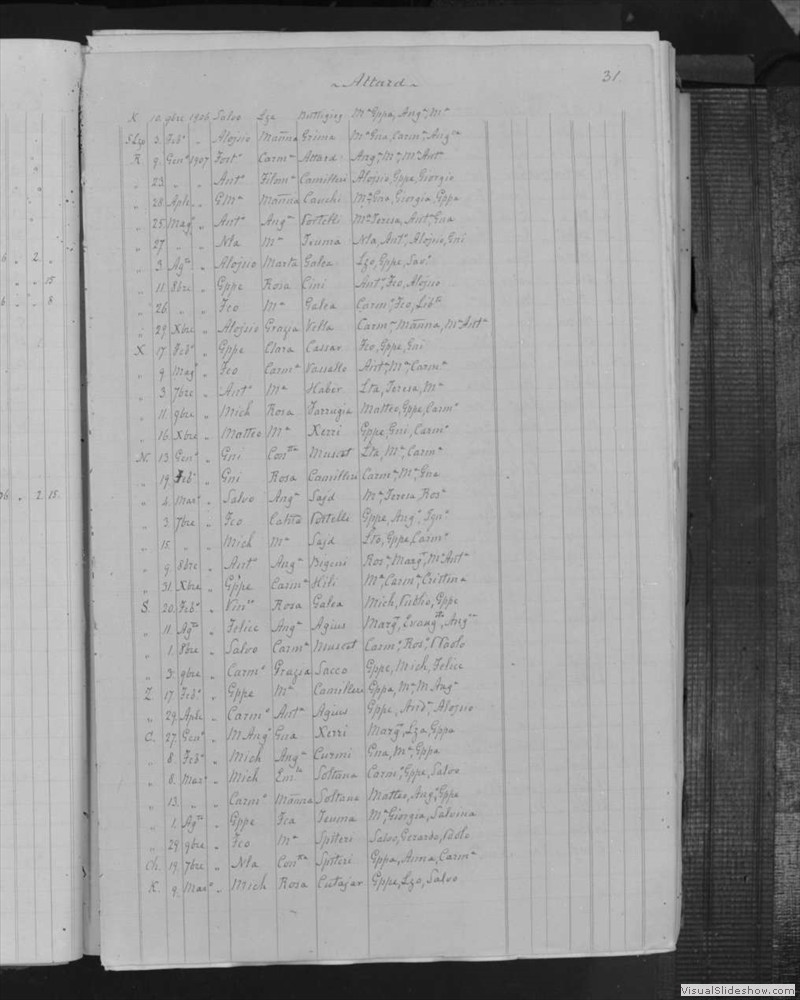 ~ Attard ~ 31.
X 10. 9bre 1906 Salvo Lza Buttigieg Mª Gppa, Angª Mª
SLzo 3. Febº „ Aloisio Marnna Grima Mª Gna, Carmª, Angca
R 9. Genº 1907 Fortº Carmª Attard Angª, Mª, Mª Antª
„ 23 „ „ Antº Filomª Camilleri Aloisio, Gppe, Giorgio
„ 28. Aple „ GMª Marnna Cauchi Mª Gna, Giorgia, Gppa
„ 25. Magº „ Antº Angª Portelli Mª Teresa, Antª, Gna
„ 27 „ „ Nla Mª Teuma Nla, Antº, Aloisio, Gni
„ 3 Agto „ Aloisio Marta Galea Lzo, Gppe, Savº
„ 11. 8bre „ Gppe Rosa Cini Antº, Fco, Aloisio
„ 26 „ „ Fco Mª Galea Carmº, Fco,
„ 29. Xbre „ Aloisio Grazia Vella Carmª, Marnna, Mª Antª
X 17. Febº „ Gppe Clara Cassar Fco, Gppe, Gni
„ 9. Magº „ Fco Carmª Vassallo Antª, Mª, Carmª
„ 3. 7bre „ Antº Mª Haber Lza, Teresa, Mª
„ 11. 9bre „ Mich Rosa Farrugia Matteo, Gppe, Carmº
„ 16. Xbre „ Matteo Mª Xerri Gppe, Gni, Carmº
N. 13. Genº „ Gni Contta Muscat Lza, Mª, Carmª
„ 19. Febº „ Gni Rosa Camilleri Carmª, Mª, Gna
„ 4. Marº „ Salvo Angª Sajd Mª, Teresa, Rosª
„ 3 7bre „ Fco Portelli Gppe, Angº, Ignº
„ 15. „ „ Mich Mª Sajd Lzo, Gppe, Carmº
„ 9. 8bre „ Antº Angª Bigeni Rosª, Margª, Mª Antª
„ 31. Xbre „ Gppe Carmª Hili Mª, Carmª, Cristina
S. 20. Febº „ Vinzo Rosa Galea Mich, Publio, Gppe
„ 11 Agto „ Felice Angª Agius Margª, Evangta, Angca
„ 1. 8bre „ Salvo Carmª Muscat Carmª, Rosª, Paolo
„ 3. 9bre „ Carmº Grazia Sacco Gppe, Mich, Felice
Z. 17. Febº „ Gppe Mª Camilleri Gppa, Mª, M Angª
„ 29. Aple „ Carmº Antª Agius Gppe, Andª, Aloisio
C. 27. Genº „ M Angº Gna Xerri Margª, Lza, Gppa
„ 8. Febº „ Mich Angª Curmi Gna, Mª, Gppa
„ 8. Marº „ Mich Emla Soltana Carmº, Gppe, Salvo
„ 13. „ „ Carmº Marnna Soltana Matteo, Angº, Gppe
„ 1. Agto „ Gppe Fca Teuma Mª, Giorgia, Salvina
„ 29. 9bre „ Fco Mª Spiteri Salvo, Gerardo, Paolo
Ch. 19. 7bre „ Nla Contta Spiteri Gppa, Anna, Carmª
K. 9. Marº „ Mich Rosa Cutajar Gppe, Lzo, Salvo
6 „ 2 „
„ „ 15
6 „ „ 8
06 „ 2. 15.
VisualSlideshow.com